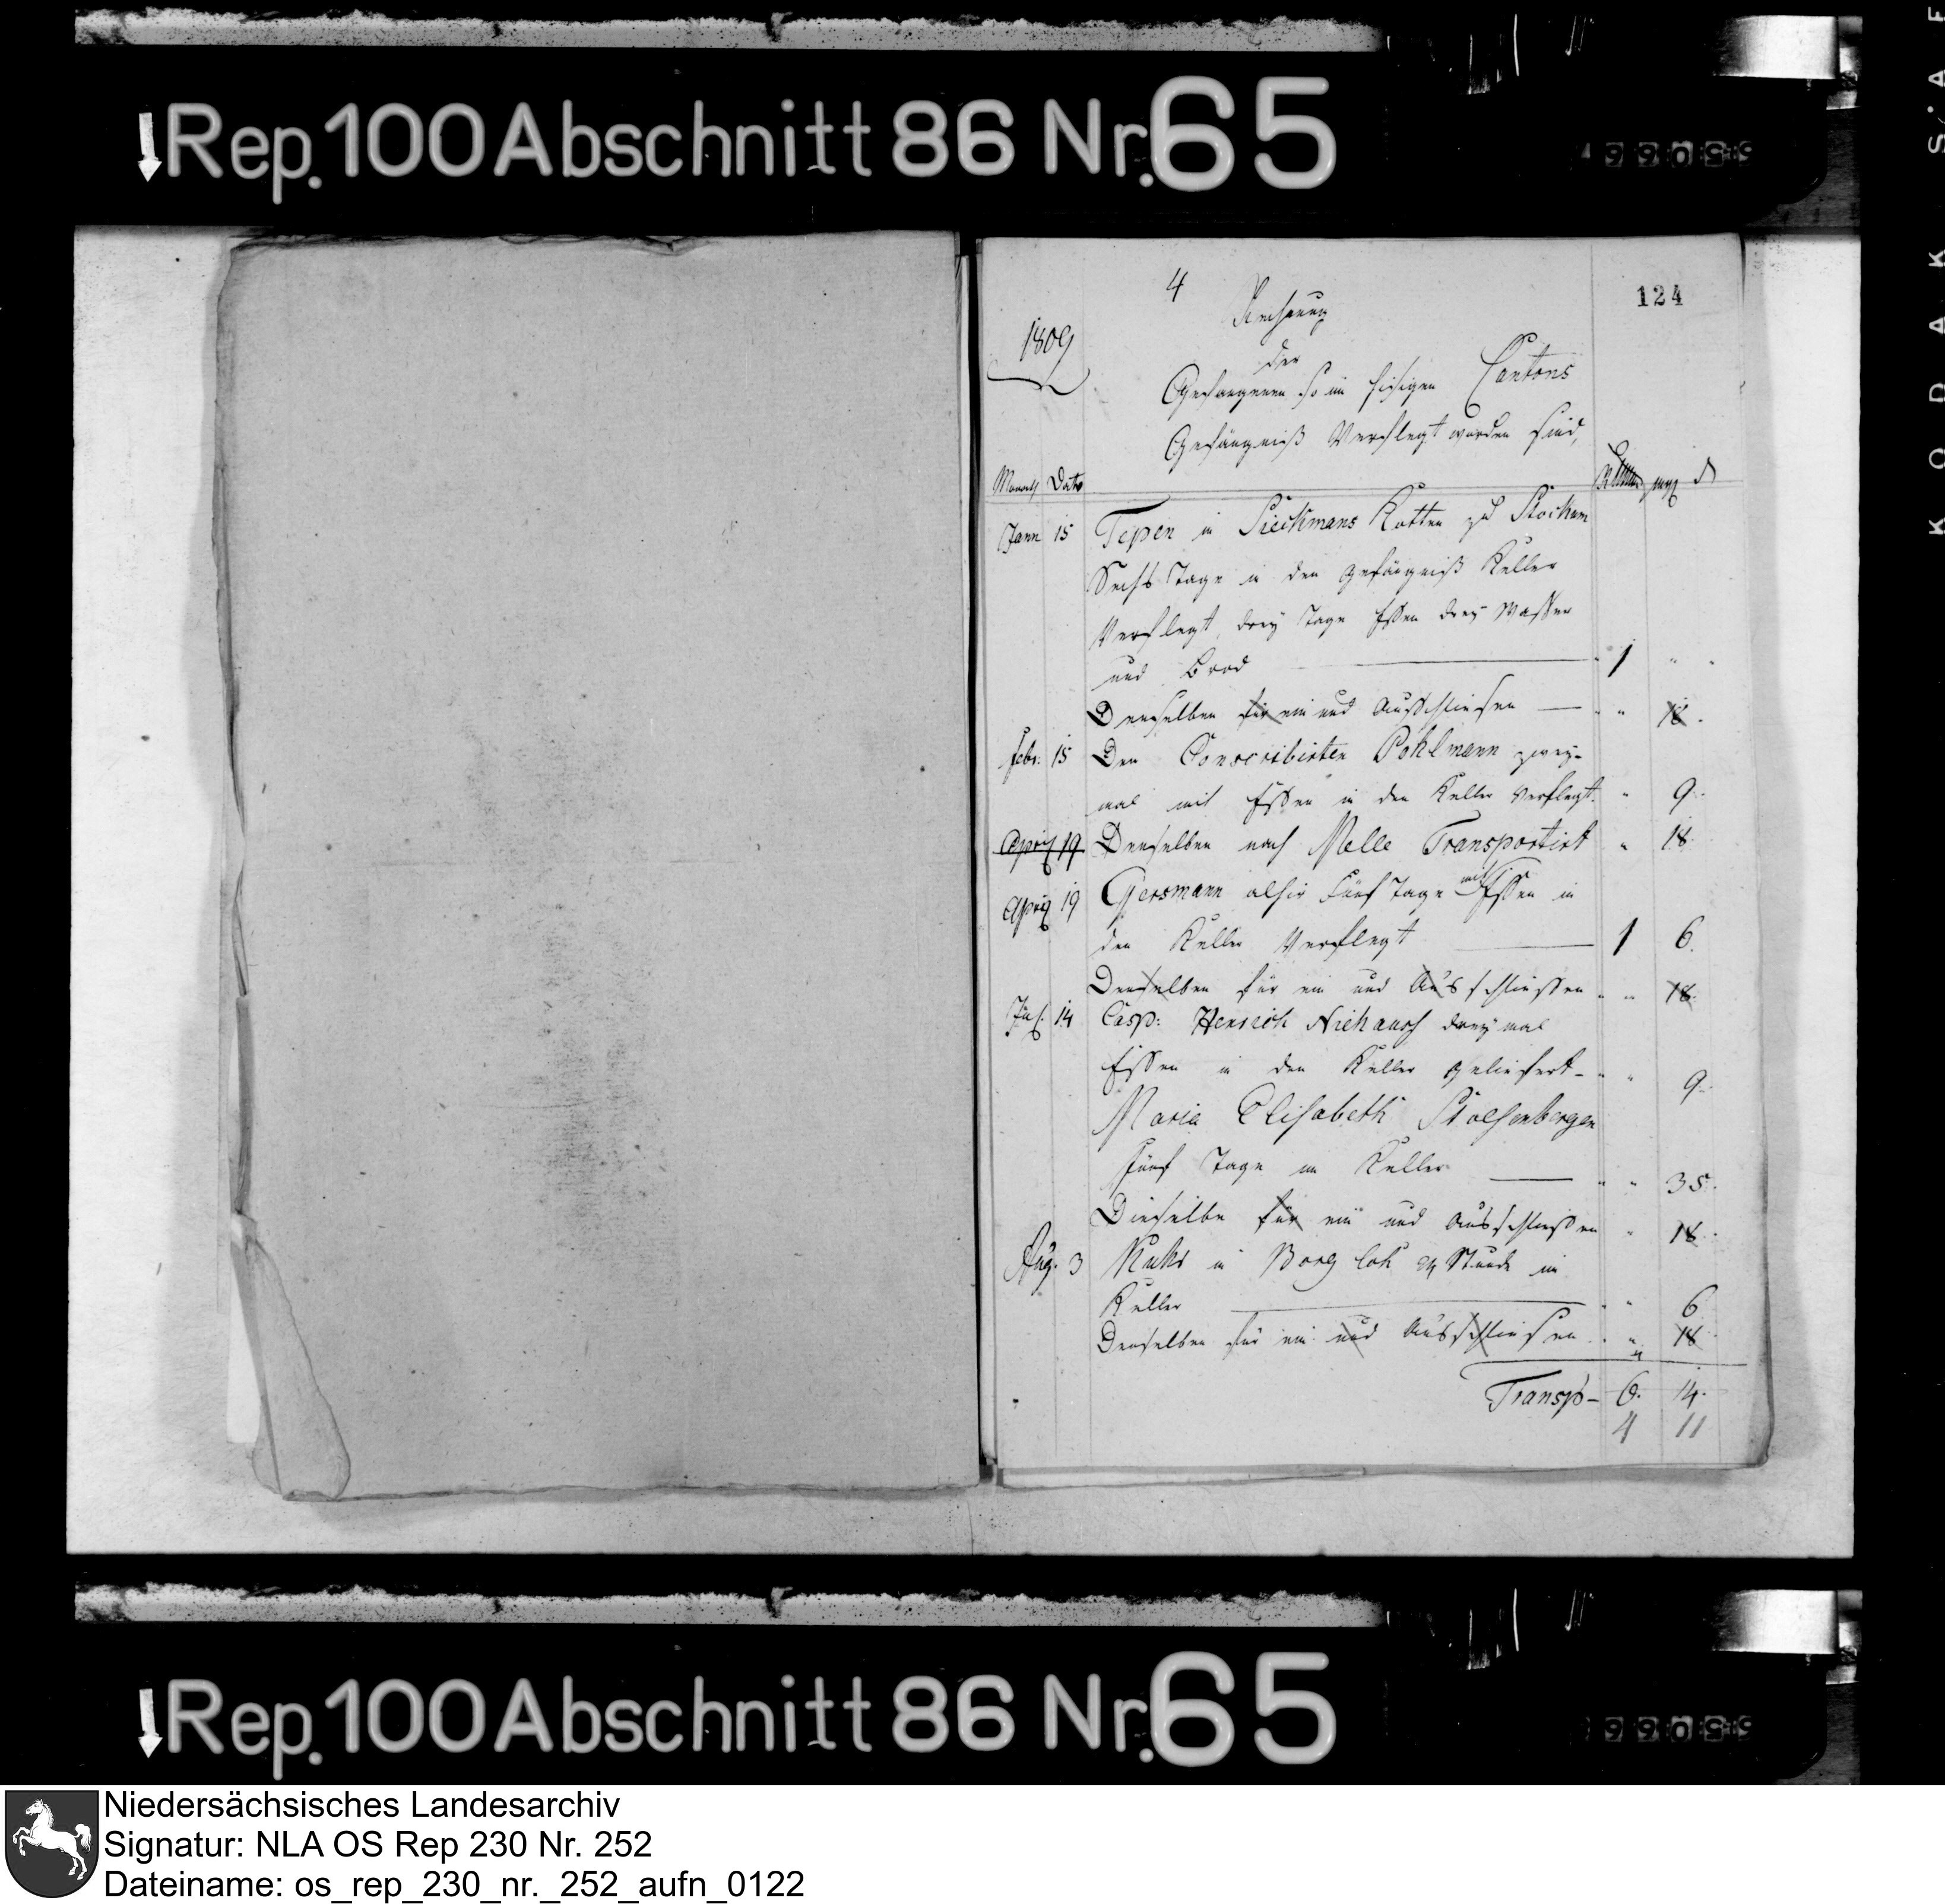 Rep. 100 Abschnitt 86 Nr. 65
4
124
1809
Rechnung
der
Gefangenen so im hiesigen Cantons
Gefängniß Verpflegt worden sind,
Monath Dato mgr d
Jann 15 Tepen in Sieckmans Kotten zu Stockum
Sechs Tage in den Gefängniß Keller
Verpflegt, drey Tage Essen drey Wasser
und Brod 1 " "
Denselben für ein und Ausschliesen " " 18.
Febr: 15 Den Conscribirten Pöhlmann zwey-
mal mit Essen in den Keller Verflegt. " 9.
April 19 Denselben nach Melle Transportirt " 18.
April 19 Gersmann alhir Fünf Tage mit Essen in
den Keller Verpflegt 1 6.
Denselben für ein und Ausschliessen " " 18.
14 Casp: Henrich Niehaus drey mal
Essen in den Keller geliefert - " " 9.
Maria Elisabeth
fünf Tage im Keller " " 35.
Dieselbe für ein und Ausschliessen " 18.
Aug. 3 in Borgloh 24 Stunde im
Keller " " 6
Denselben für ein und Ausschliesen " " 18.
Transp- 6. 14.
4 11
KODAK SAFE
Rep. 100 Abschnitt 86 Nr. 65
Niedersächsisches Landesarchiv
Signatur: NLA OS Rep 230 Nr. 252
Dateiname: os_rep_230_nr._252_aufn_0122